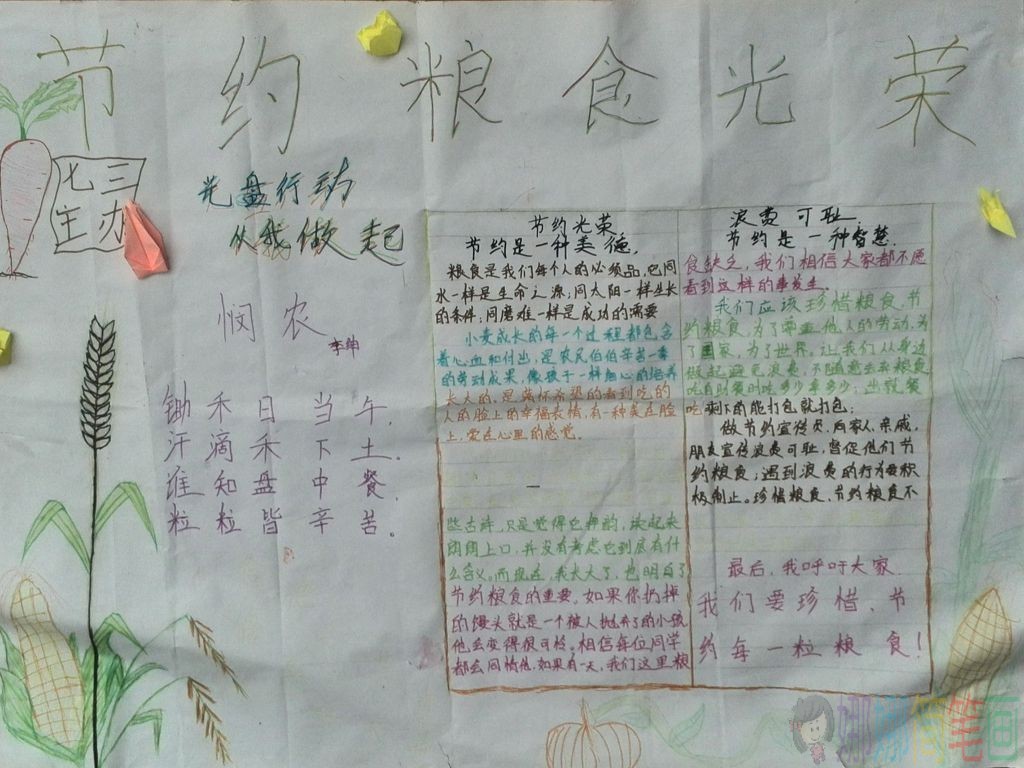 节约粮食光荣
七三
主办
光盘行动
从我做起
悯农
李绅
锄禾日当午，
汗滴禾下土，
谁知盘中餐，
粒粒皆辛苦。
节约光荣
节约是一种美德，
粮食是我们每个人的必须品，它同
水一样是生命之源；同太阳一样生长
的条件；同磨难一样是成功的需要
小麦成长的每一个过程都包含
着心血和付出，是农民伯伯辛苦一季
的劳动成果，像孩子一样细心的培养
长大的，是满怀希望的看到吃的
人的脸上的幸福表情，有一种美在脸
上，爱在心里的感觉。
些古诗，只是觉得它押韵，读起来
朗朗上口，并没有考虑它到底有什
么含义。而现在，我长大了，也明白了
节约粮食的重要。如果你扔掉
的馒头就是一个被人抛弃了的小孩
他会变得很可怜。相信每位同学
都会同情他，如果有一天，我们这里粮
浪费可耻
节约是一种智慧
食缺乏，我们相信大家都不愿
看到这样的事发生。
我们应该珍惜粮食，节
约粮食，为了尊重他人的劳动，为
了国家，为了世界。让我们从身边
做起避免浪费，不随意丢弃粮食
吃自助餐时吃多少拿多少；出现餐
吃剩下的能打包就打包；
做节约宣传员，向家人、亲戚，
朋友宣传浪费可耻，督促他们节
约粮食；遇到浪费的行为要积
极制止。珍惜粮食、节约粮食不
最后，我呼吁大家
我们要珍惜、节
约每一粒粮食！
娜娜简笔画